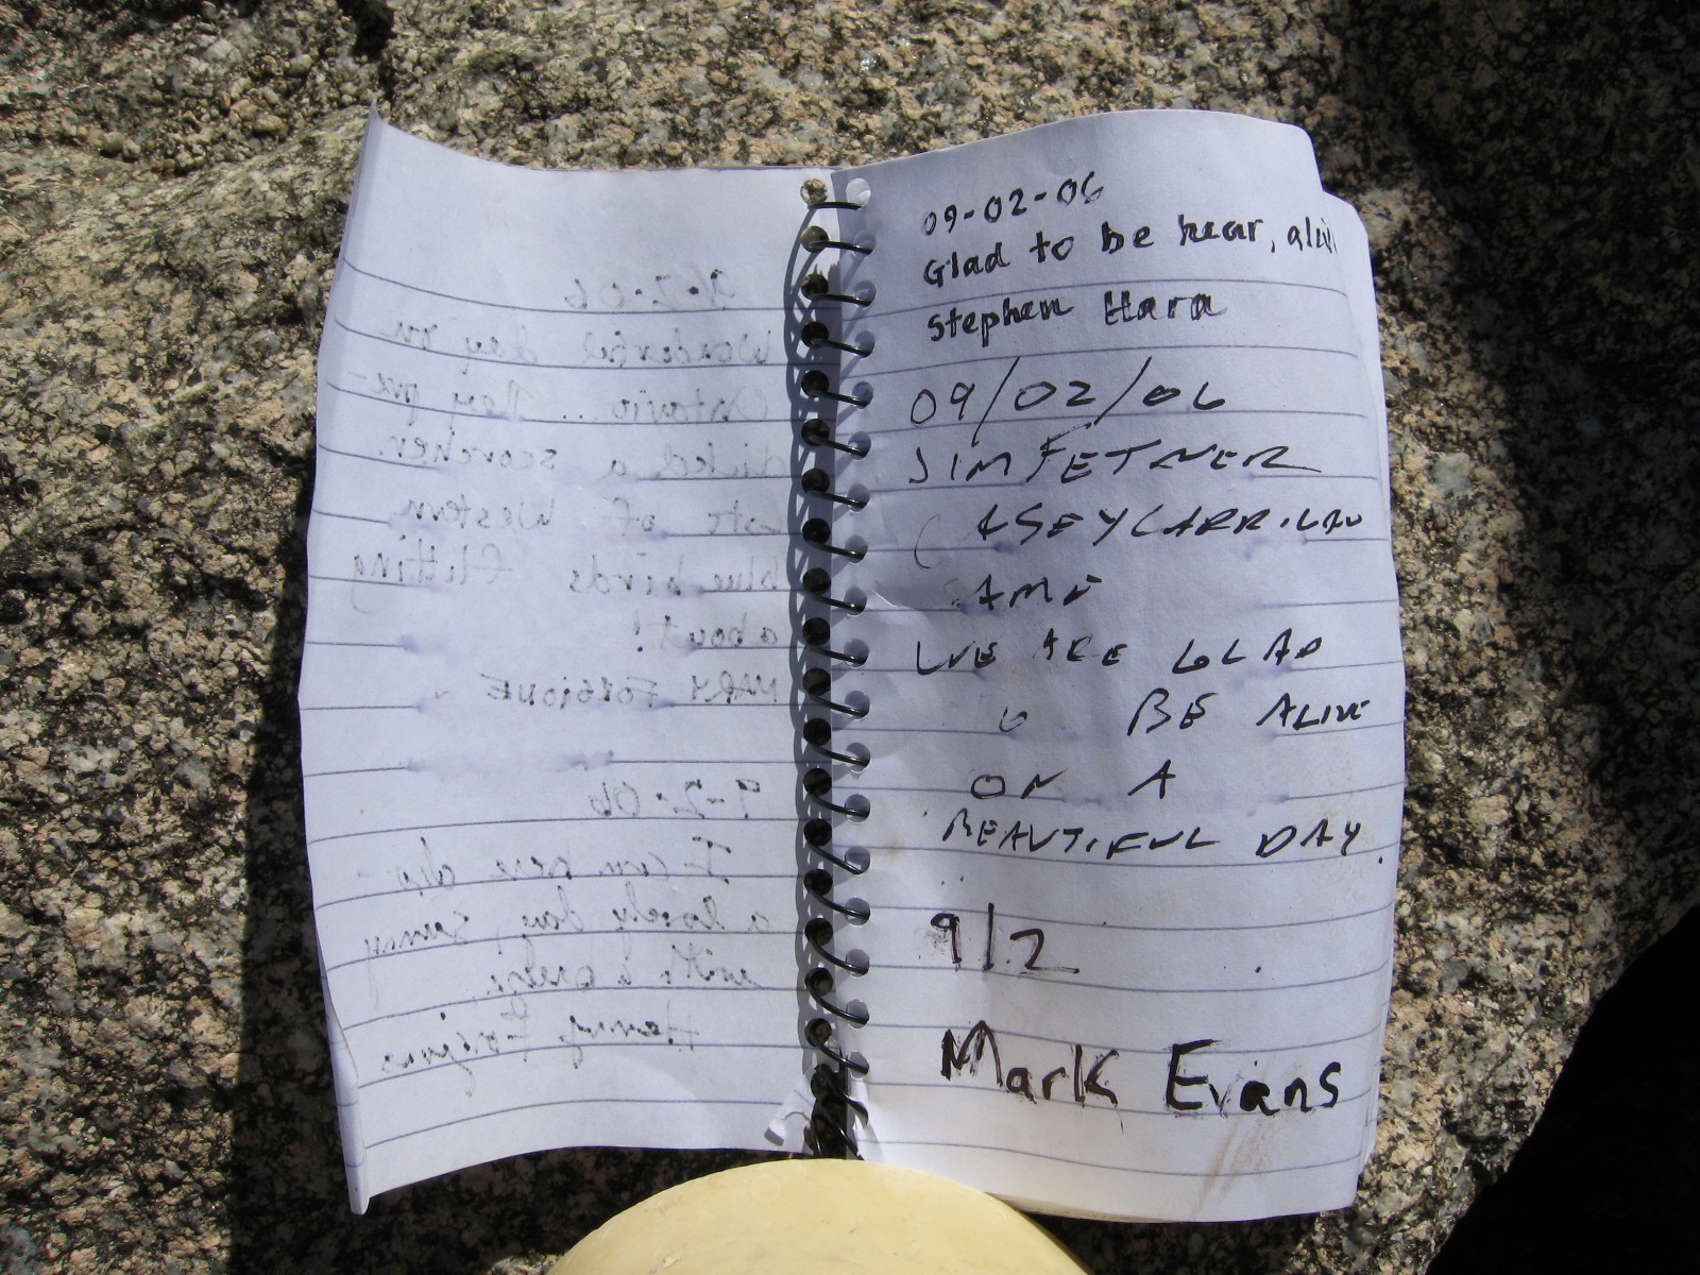 9-2-06
Wonderful day on
Ontario... They pre-
dicted a scorcher.
Lots of Western
blue birds flitting
about!
MARY FORGIONE
9-2-06
I am here also -
a lovely day, sunny
with breeze,
Henry Forgione
09-02-06
Glad to be hear, aliv
Stephen Hara
09/02/06
JIM FETNER
WE ARE GLAD
BE ALIVE
ON A
BEAUTIFUL DAY.
9/2
Mark Evans